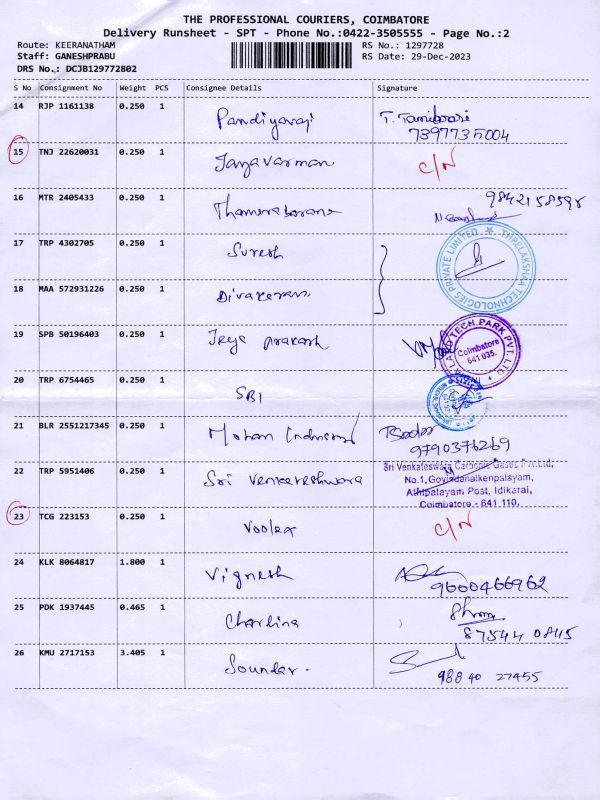 THE PROFESSIONAL COURIERS, COIMBATORE
Delivery Runsheet - SPT - Phone No.:0422-3505555 - Page No.:2
Route: KEERANATHAM RS No.: 1297728
Staff: GANESHPRABU RS Date: 29-Dec-2023
DRS No.: DCJB129772802
S No Consignment No Weight PCS Consignee Details Signature
14 RJP 1161138 0.250 1 Pandiyaraj T. Tamilarasi
7397735004
15 TNJ 22620031 0.250 1 Jayavarman C/N
16 MTR 2405433 0.250 1 9842158598
17 TRP 4302705 0.250 1 Suresh
THRELAKSHAA TECHNOLOGIES PRIVATE LIMITED
18 MAA 572931226 0.250 1 Divakaran
19 SPB 50196403 0.250 1 Jeya prakash
LAND TECH PARK PVT. LTD.
Coimbatore
641 035.
20 TRP 6754465 0.250 1 SBI
21 BLR 2551217345 0.250 1 Mohan
9790376269
22 TRP 5951406 0.250 1 Sri Venkateshwara
Sri Venkateswara Carbonic Gases Pvt. Ltd,
No.1, Govindanaickenpalayam,
Athipalayam Post, Idikarai,
Coimbatore - 641 110.
23 TCG 223153 0.250 1 Voolex C/N
24 KLK 8064817 1.800 1 Vignesh
9600466962
25 PDK 1937445 0.465 1 Charlina
87544 0845
26 KMU 2717153 3.405 1 Sounder.
98840 27455